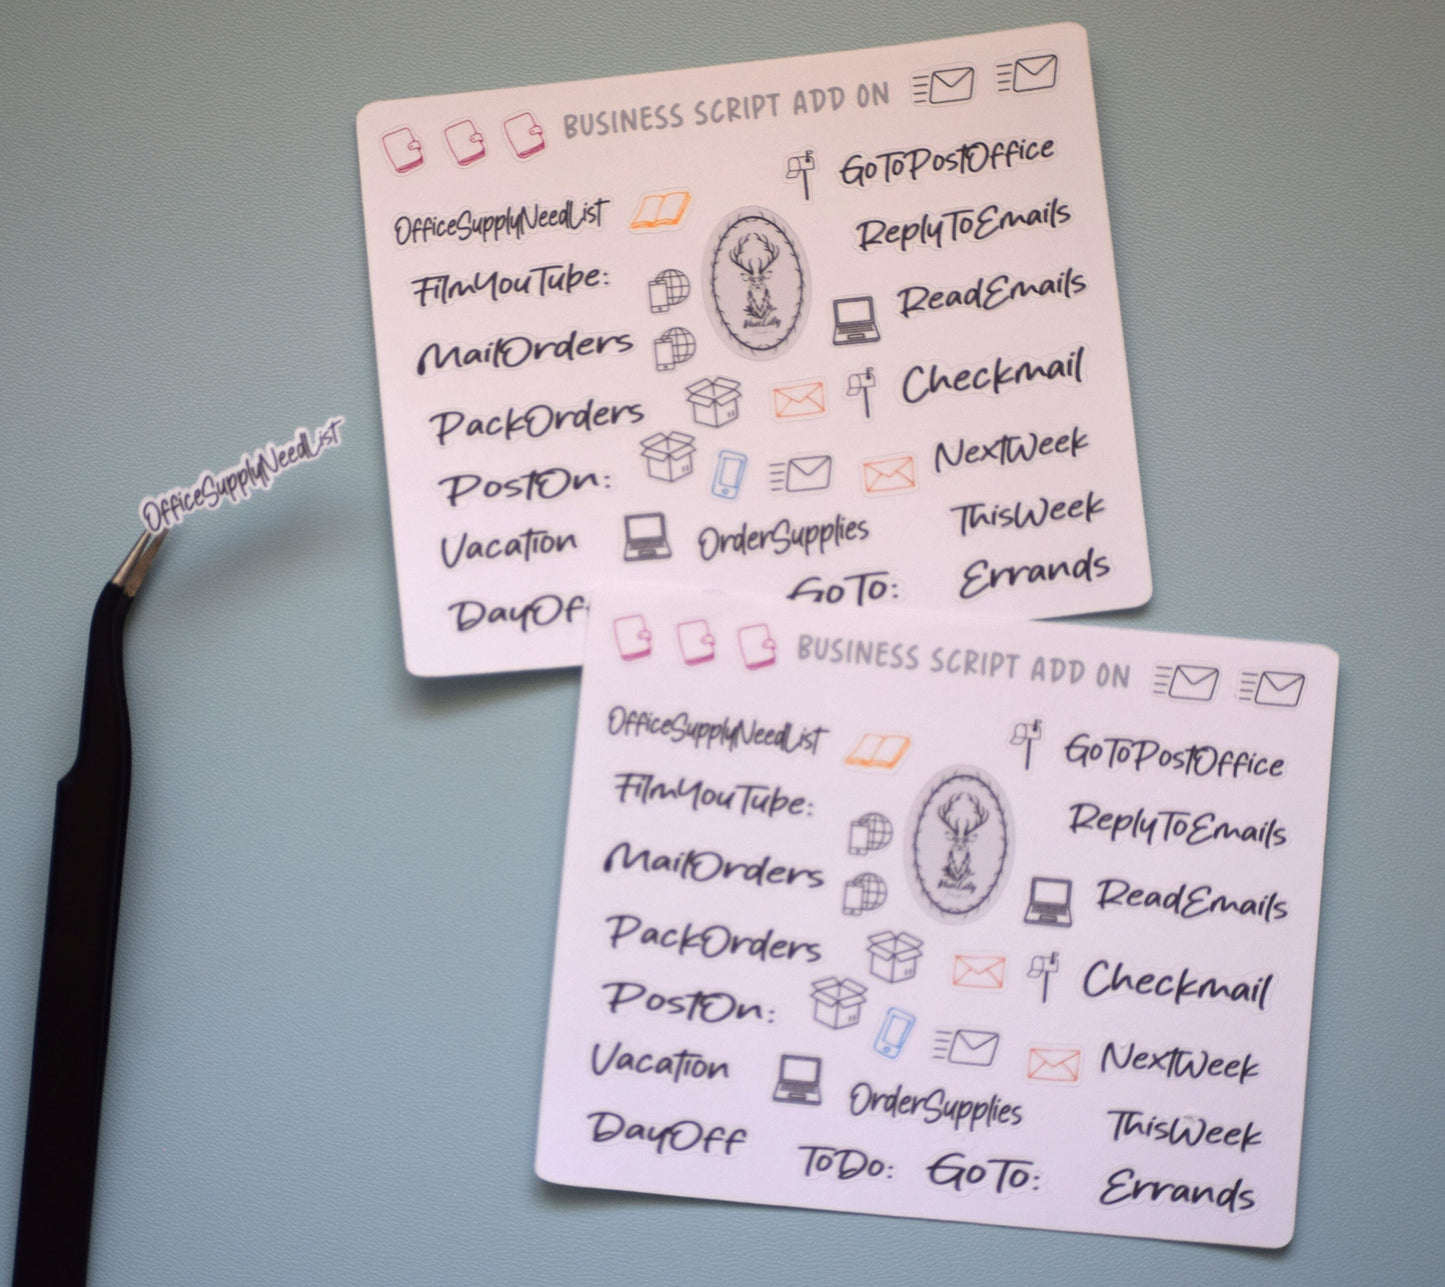 BUSINESS SCRIPT ADD ON
OfficeSupplyNeedList
GoToPostOffice
FilmYouTube:
ReplyToEmails
MailOrders
ReadEmails
PackOrders
Checkmail
PostOn:
NextWeek
Vacation
OrderSupplies
ThisWeek
DayOf
GoTo:
Errands
OfficeSupplyNeedList
BUSINESS SCRIPT ADD ON
OfficeSupplyNeedList
GoToPostOffice
FilmYouTube:
ReplyToEmails
MailOrders
ReadEmails
PackOrders
Checkmail
PostOn:
NextWeek
Vacation
OrderSupplies
ThisWeek
DayOff
ToDo:
GoTo:
Errands